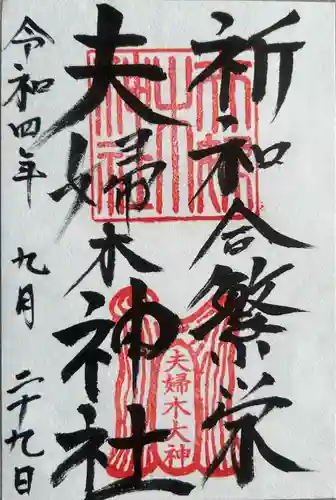 祈和合繁栄
夫婦木神社
夫婦木大神
令和四年 九月 二十九日